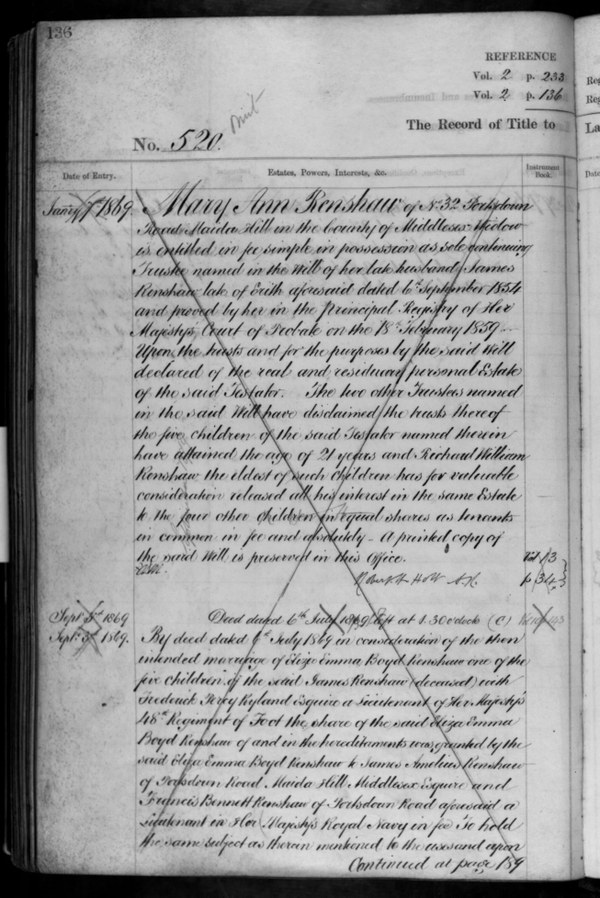 136
REFERENCE
Vol. 2 p. 233
Vol. 2 p. 136
The Record of Title to
No. 520.
Date of Entry.
Estates, Powers, Interests, &c.
Instrument Book.
1869. Mary Ann Renshaw of No. 32 Portsdown
Road Maida Hill in the County of Middlesex Widow
is entitled in fee simple in possession as sole continuing
Trustee named in the Will of her late husband James
Renshaw late of Erith aforesaid dated 6th September 1854
and proved by her in the Principal Registry of Her
Majesty's Court of Probate on the 18th February 1859
Upon the trusts and for the purposes by the said Will
declared of the real and residuary personal Estate
of the said Testator. The two other Trustees named
in the said Will have disclaimed the trusts thereof
the five children of the said Testator named therein
have attained the age of 21 years and Richard William
Renshaw the eldest of such children has for valuable
consideration released all his interest in the same Estate
to the four other children in equal shares as tenants
in common in fee and absolutely - A printed copy of
the said Will is preserved in this Office.
Sept 3rd 1869 Deed dated 6th July 1869 left at 1.30 o'clock (C)
Sept. 3rd 1869. By deed dated 6th July 1869 in consideration of the then
intended marriage of Eliza Emma Boyd Renshaw one of the
five children of the said James Renshaw (deceased) with
Frederick Percy Ryland Esquire a Lieutenant of Her Majesty's
48th Regiment of Foot the share of the said Eliza Emma
Boyd Renshaw of and in the hereditaments was granted by the
said Eliza Emma Boyd Renshaw to James Amelius Renshaw
of Portsdown Road Maida Hill Middlesex Esquire and
Francis Bennett Renshaw of Portsdown Road aforesaid a
Lieutenant in Her Majesty's Royal Navy in fee To hold
the same subject as therein mentioned to the uses and upon
Continued at page 189